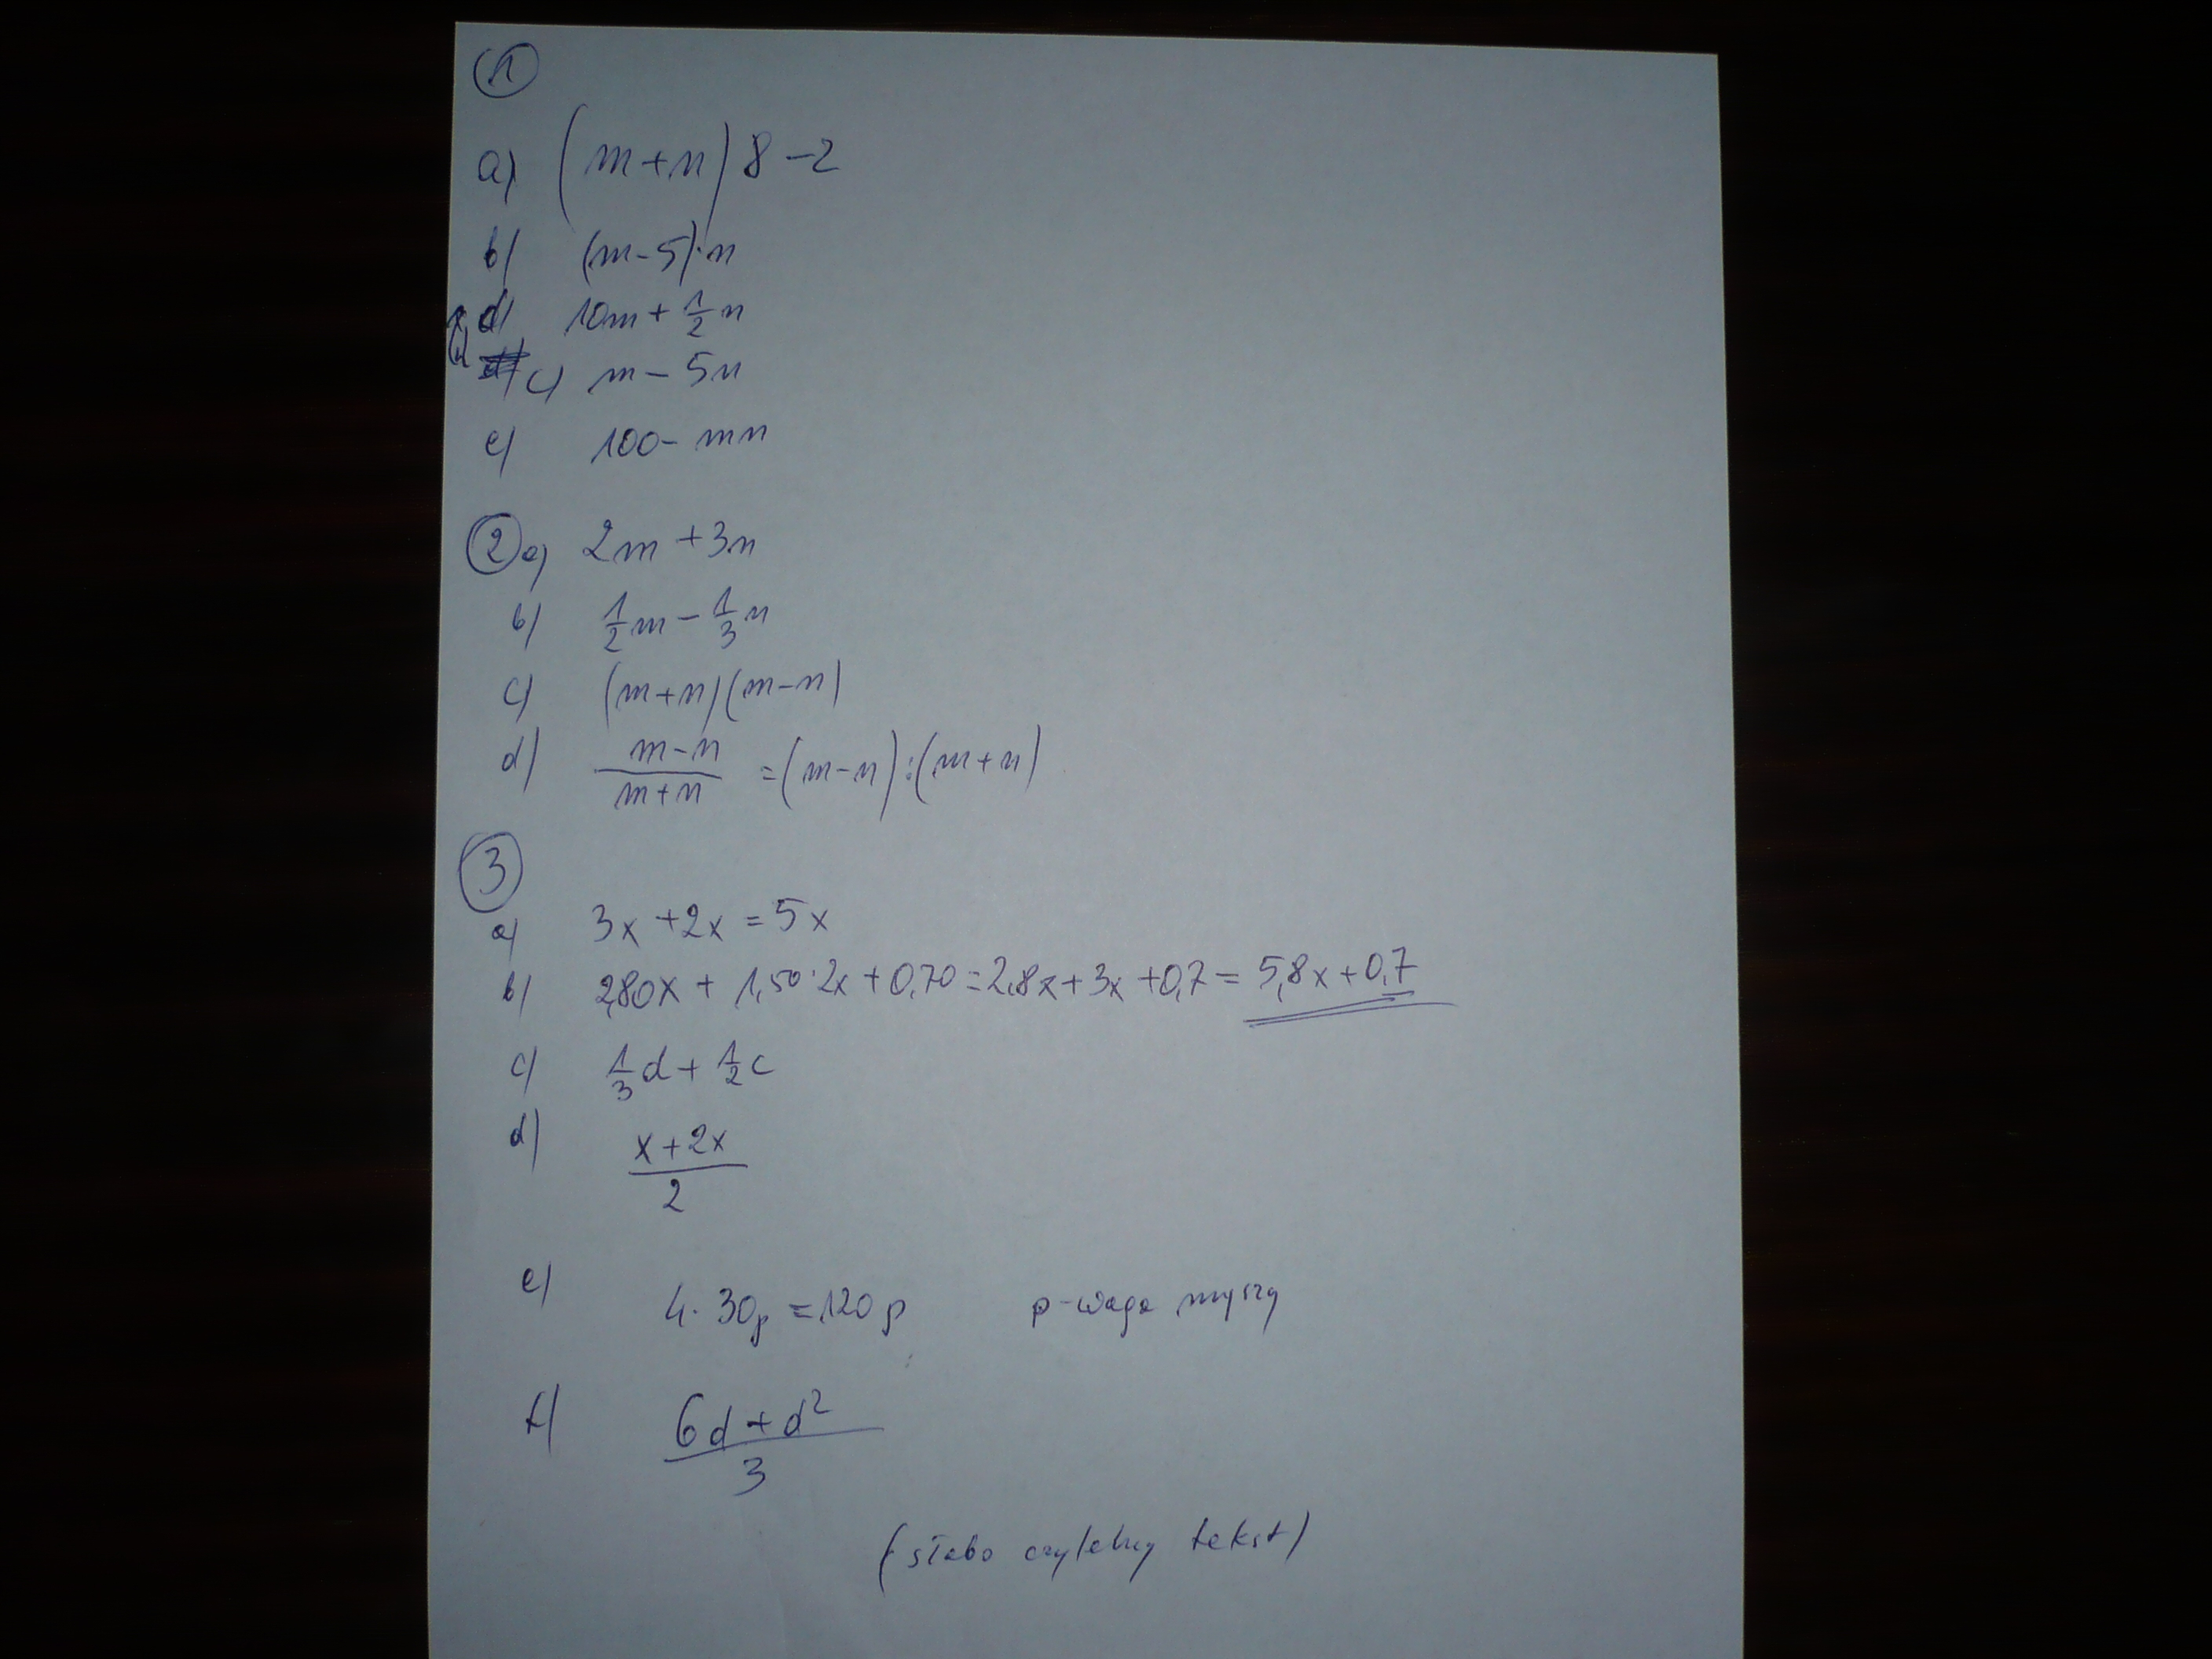 1
a) (m+n) 8 - 2
b) (m-5)·n
d) 10m + 1/2 n
c) m - 5n
e) 100 - mn
2 a) 2m + 3n
b) 1/2 m - 1/3 n
c) (m+n)(m-n)
d) m-n / m+n = (m-n):(m+n)
3
a) 3x + 2x = 5x
b) 2,80x + 1,50·2x + 0,70 = 2,8x + 3x + 0,7 = 5,8x + 0,7
c) 1/3 d + 1/2 c
d) x+2x / 2
e) 4·30p = 120p p-waga myszy
f) 6d + d² / 3
(słabo czytelny tekst)